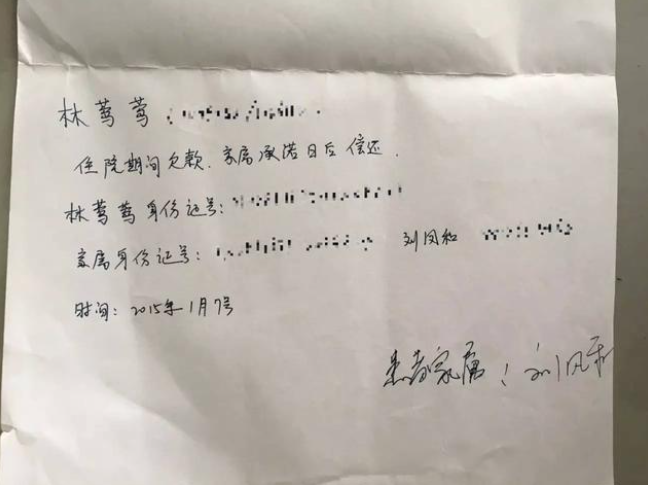 林莺莺
住院期间欠款.家属承诺日后偿还.
林莺莺身份证号:
家属身份证号: 刘凤和
时间: 2015年1月7号
患者家属: 刘凤和